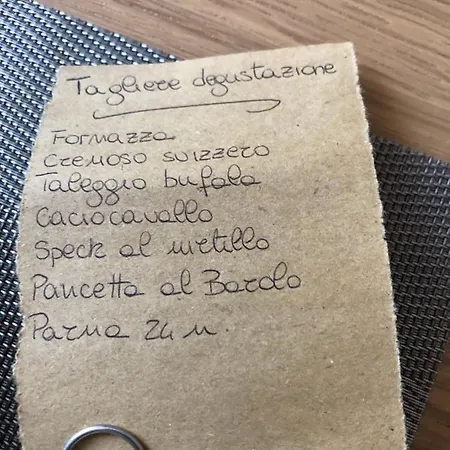 Tagliere degustazione
Formazza
Cremoso svizzero
Taleggio bufala
Caciocavallo
Speck al mirtillo
Pancetta al Barolo
Parma 24 m.